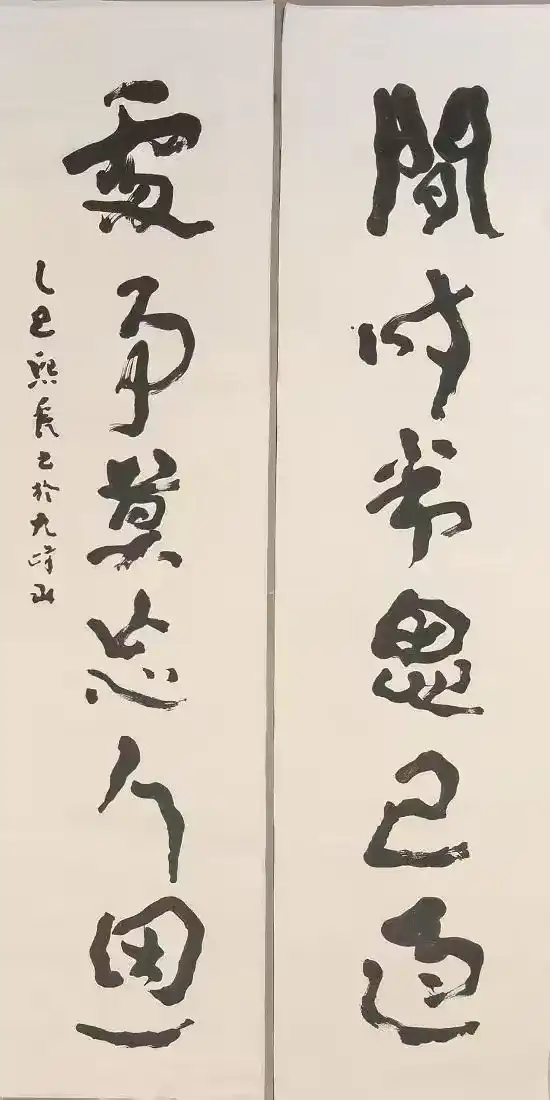 間時常思己過
處事莫忘人恩
乙巳熙書於九峰山